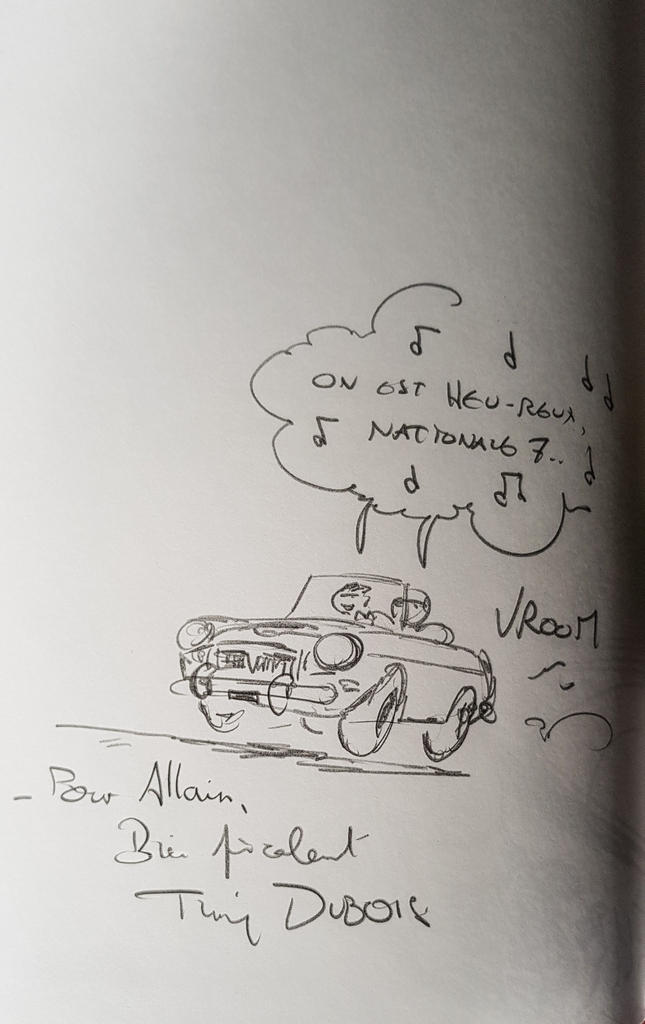 ON EST HEU-REUX,
NATIONALE 7..
VROOM
- Pour Allain,
Bien
Thierry DUBOIS